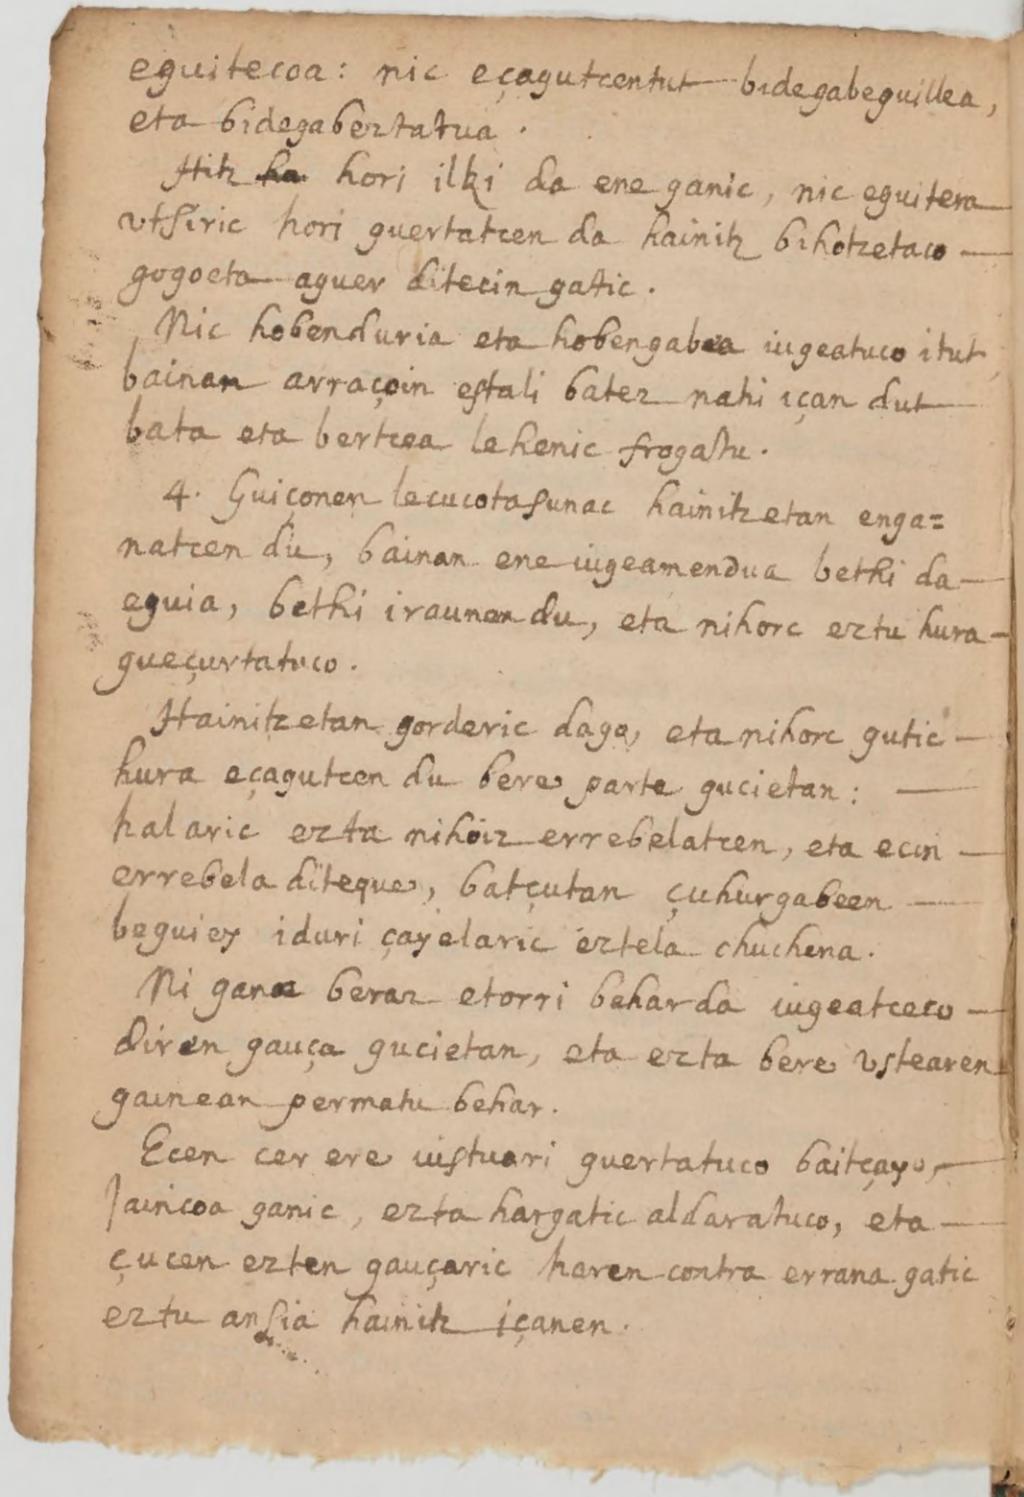 eguitecoa: nic eçagutcentut bidegabeguillea,
eta bidegabeztatua.
Hitz ha hori ilki da ene ganic, nic eguitera
vtsiric hori guertatcen da hainitz bihotzetaco
gogoeta aguer ditecin gatic.
Nic hobenduria eta hobengabea iugeatuco itut,
bainan arraçoin estali batez nahi içan dut
bata eta bertcea lehenic frogatu.
4. Guiçonen lecucotasunac hainitzetan enga=
natcen du, bainan ene iugeamendua bethi da
eguia, bethi iraunen du, eta nihorc eztu hura
gueçurtatuco.
Hainitzetan gorderic dago, eta nihorc gutic
hura eçagutcen du bere parte gucietan:
halaric ezta nihoiz errebelatcen, eta ecin
errebela diteque, batçutan çuhurgabeen
beguiey iduri çayelaric eztela chuchena.
Ni gana beraz etorri behar da iugeatceco
diren gauça gucietan, eta ezta bere vstearen
gainean permatu behar.
Ecen cer ere iustuari guertatuco baitçayo,
Jaincoa ganic, ezta hargatic aldaratuco, eta
çucen ezten gauçaric haren contra errana gatic
eztu ansia hainitz içanen.